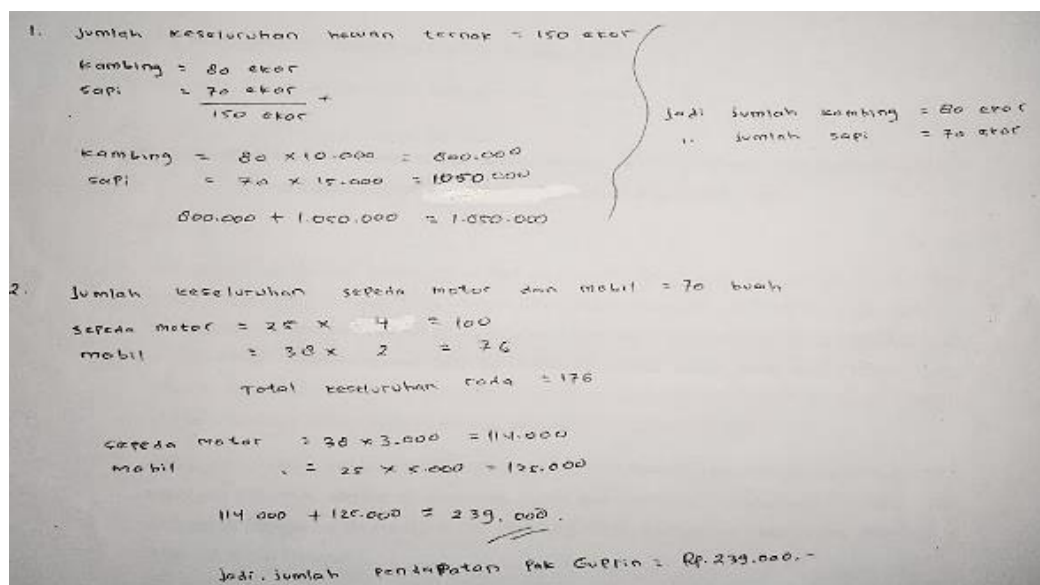 1. Jumlah keseluruhan hewan ternak = 150 ekor
kambing = 80 ekor
sapi = 70 ekor +
150 ekor
kambing = 80 x 10.000 = 800.000
sapi = 70 x 15.000 = 1050.000
800.000 + 1.050.000 = 1.850.000
Jadi jumlah kambing = 80 ekor
" jumlah sapi = 70 ekor
2. Jumlah keseluruhan sepeda motor dan mobil = 70 buah
sepeda motor = 25 x 4 = 100
mobil = 38 x 2 = 76
Total keseluruhan roda = 176
sepeda motor = 38 x 3.000 = 114.000
mobil = 25 x 5.000 = 125.000
114.000 + 125.000 = 239.000.
Jadi, jumlah pendapatan Pak Guprin = Rp. 239.000.-